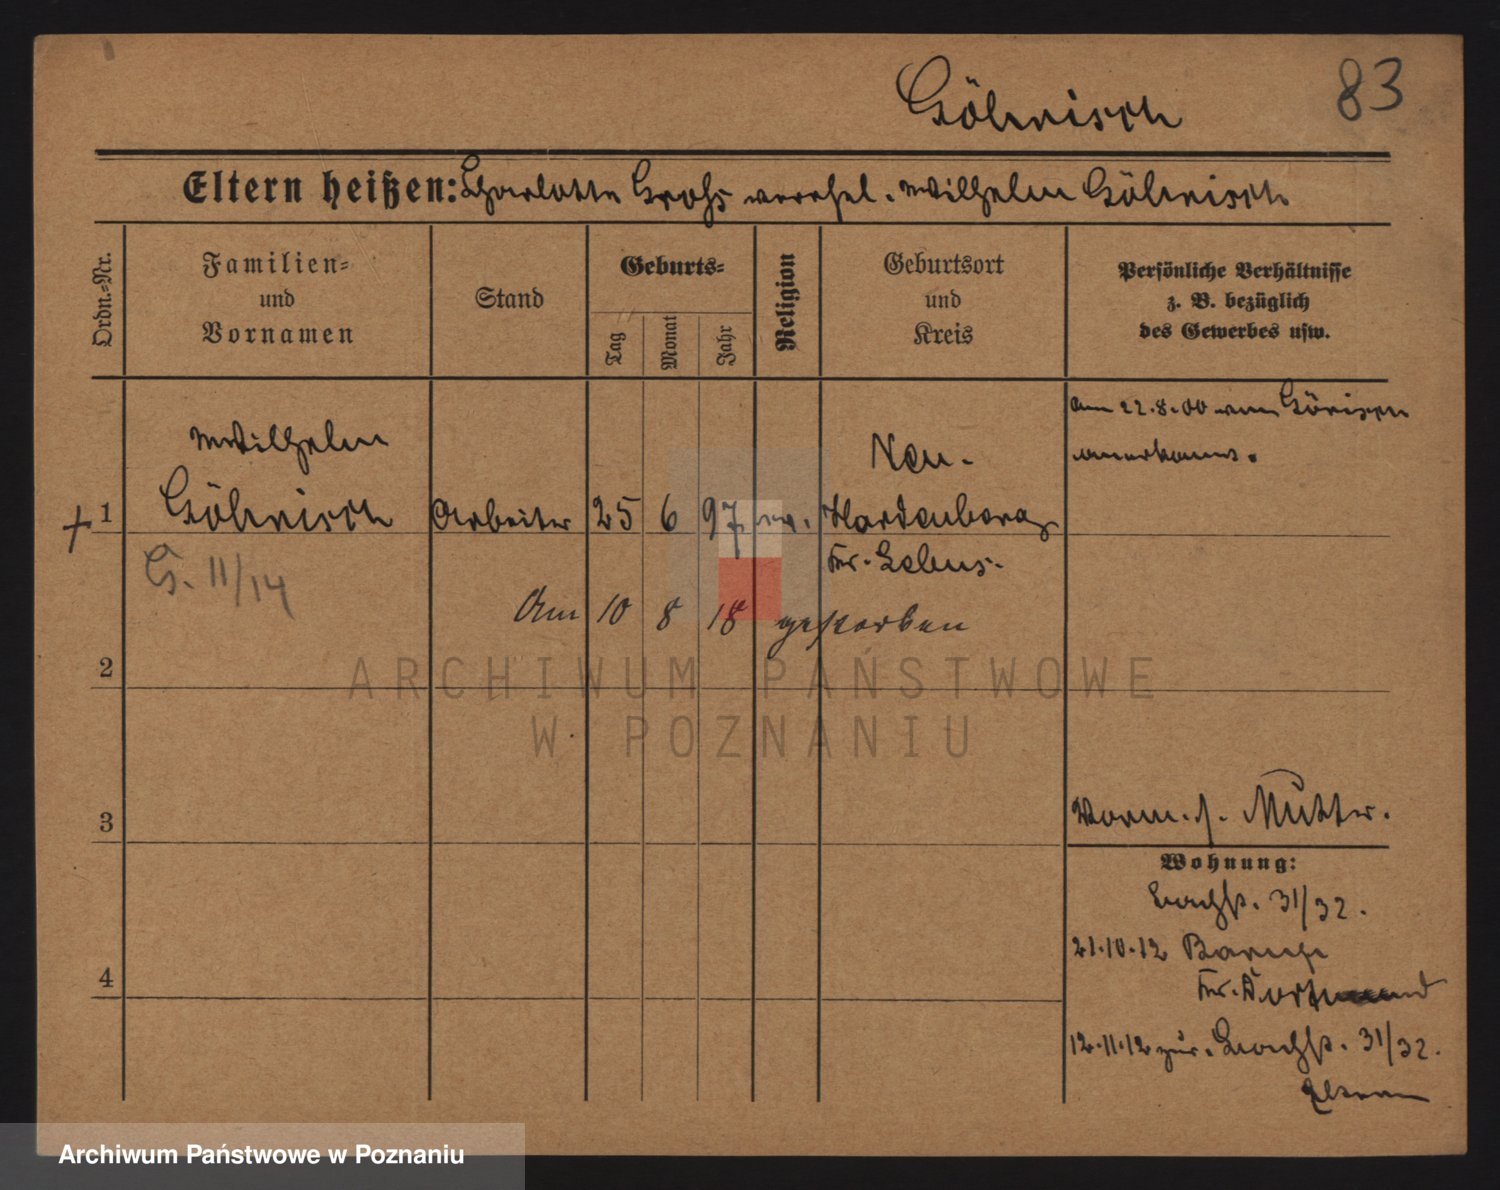 Göhrisch 83
Eltern heißen: Charlotte Grohs verehel. Wilhelm Göhrisch
Ordn.-Nr.
Familien-
und
Vornamen
Stand
Geburts-
Tag
Monat
Jahr
Religion
Geburtsort
und
Kreis
Persönliche Verhältnisse
z. B. bezüglich
des Gewerbes usw.
am 22.8.00 von Görisch
anerkannt.
Wilhelm
Neu-
+ 1 Göhrisch Arbeiter 25 6 97 ev. Hardenberg
Kr. Lebus.
G. 11/14
Am 10 8 18 gestorben
2
3
4
Vorm. s. Mutter.
Wohnung:
Bachstr. 31/32.
21.10.12
Kr. Dortmund
12.11.12 zur. Bachstr. 31/32.
Eltern
ARCHIWUM PAŃSTWOWE
W POZNANIU
Archiwum Państwowe w Poznaniu